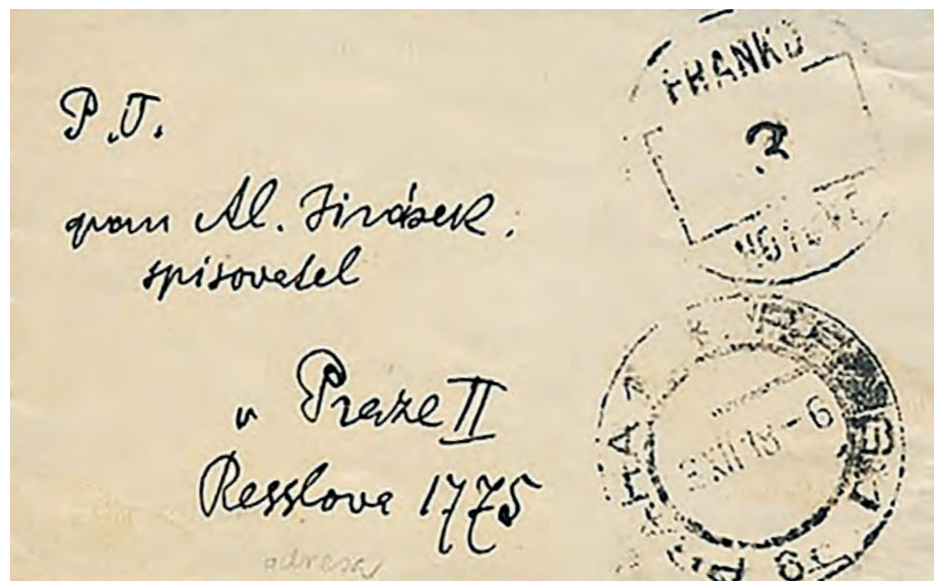 P.T.
pan Al. Jirásek,
spisovatel
v Praze II
Resslova 1775
adresa
FRANKO
?
3 XII 18 - 6